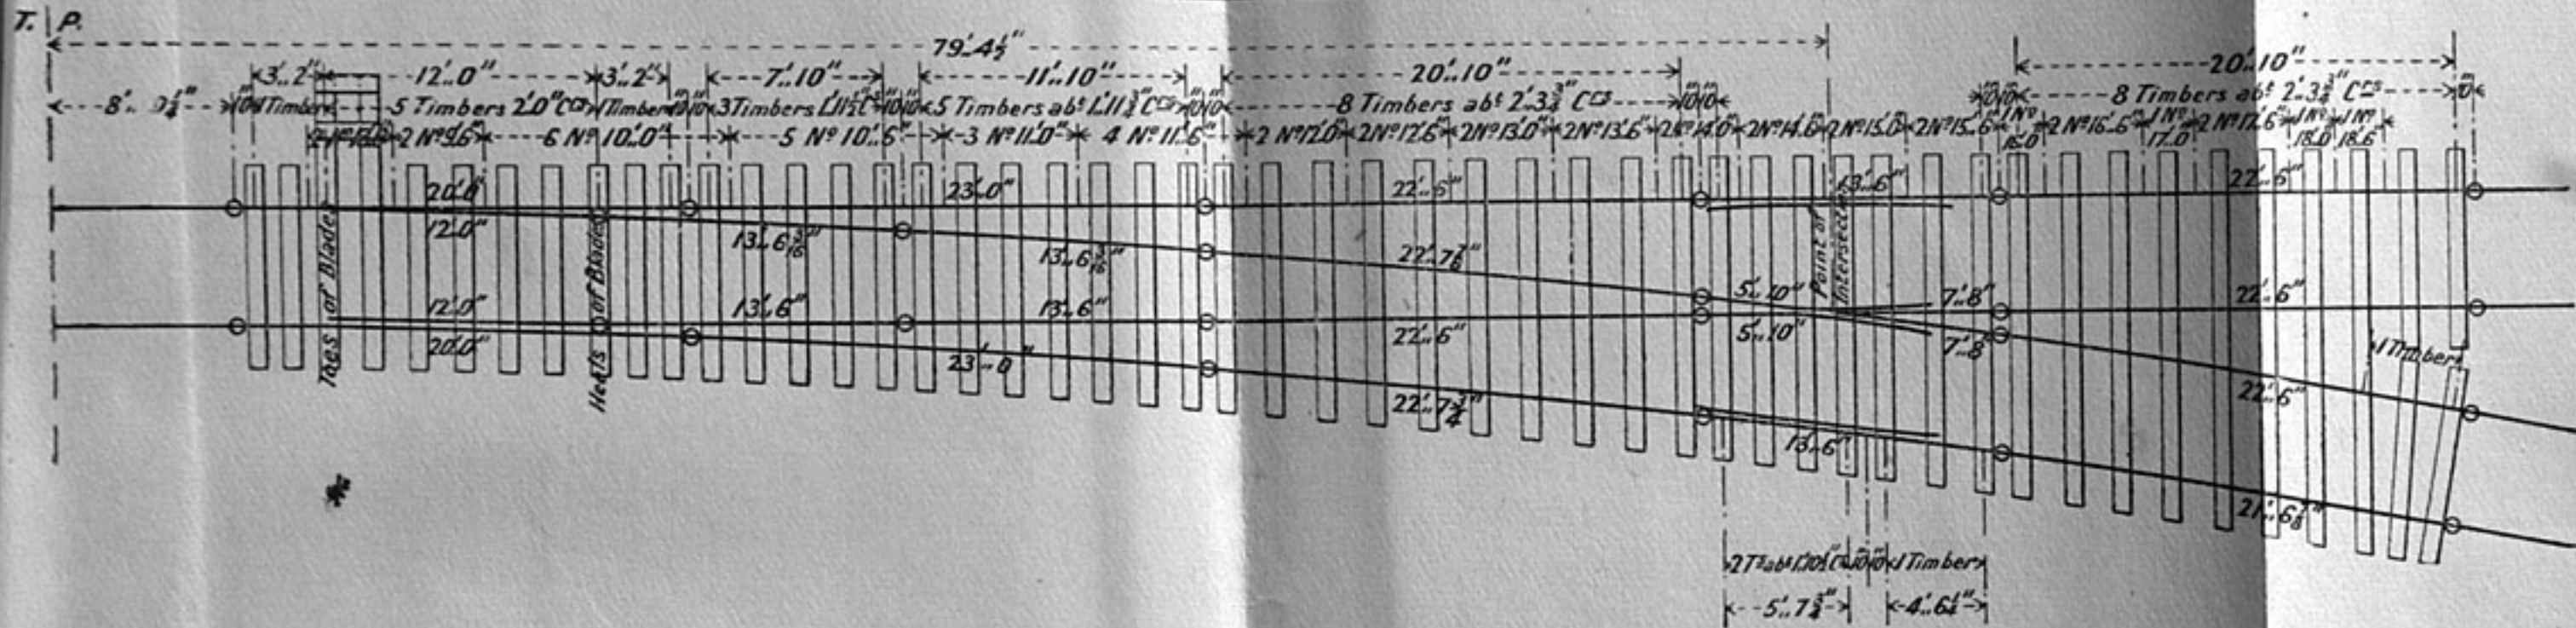 T. P.
79'..4½"
3'..2" 12'..0" 3'..2" 7'..10" 11'..10" 20'..10" 20'..10"
10" 1 Timber 5 Timbers 2'.0" Crs 1 Timber 10" 10" 3 Timbers 1'.11½" Crs 10" 10" 5 Timbers abt 1'.11¾" Crs 10" 10" 8 Timbers abt 2'.3¾" Crs 10" 10" 10" 10" 8 Timbers abt 2'.3¾" Crs 10"
2 Nº 9'.6" 6 Nº 10'..0" 5 Nº 10'..6" 3 Nº 11'..0" 4 Nº 11'..6" 2 Nº 12'.0" 2 Nº 12'.6" 2 Nº 13'.0" 2 Nº 13'.6" 2 Nº 14'.0" 2 Nº 14'.6" 2 Nº 15'.0" 2 Nº 15'.6" 1 Nº 16'.0 2 Nº 16'.6" 1 Nº 17'.0 2 Nº 17'.6" 1 Nº 18'.0 1 Nº 18'.6
20'.0" 23'..0" 22'..6" 13'..6" 22'..6"
12'.0" 13'..6 3/16" 13'..6 3/16" 22'..7⅞"
Toes of Blades
Heels of Blades
Point of Intersection
12'.0" 13'..6" 13'..6" 5'..10" 7'..8" 22'..6"
20'.0" 23'..0" 22'..6" 5'..10" 7'..8"
1 Timber
22'..7¾" 13'..6" 22'..6"
21'..6⅛"
2 Ts abt 1'.10½" Crs 10" 10" 1 Timber
5'..7¾" 4'..6¼"